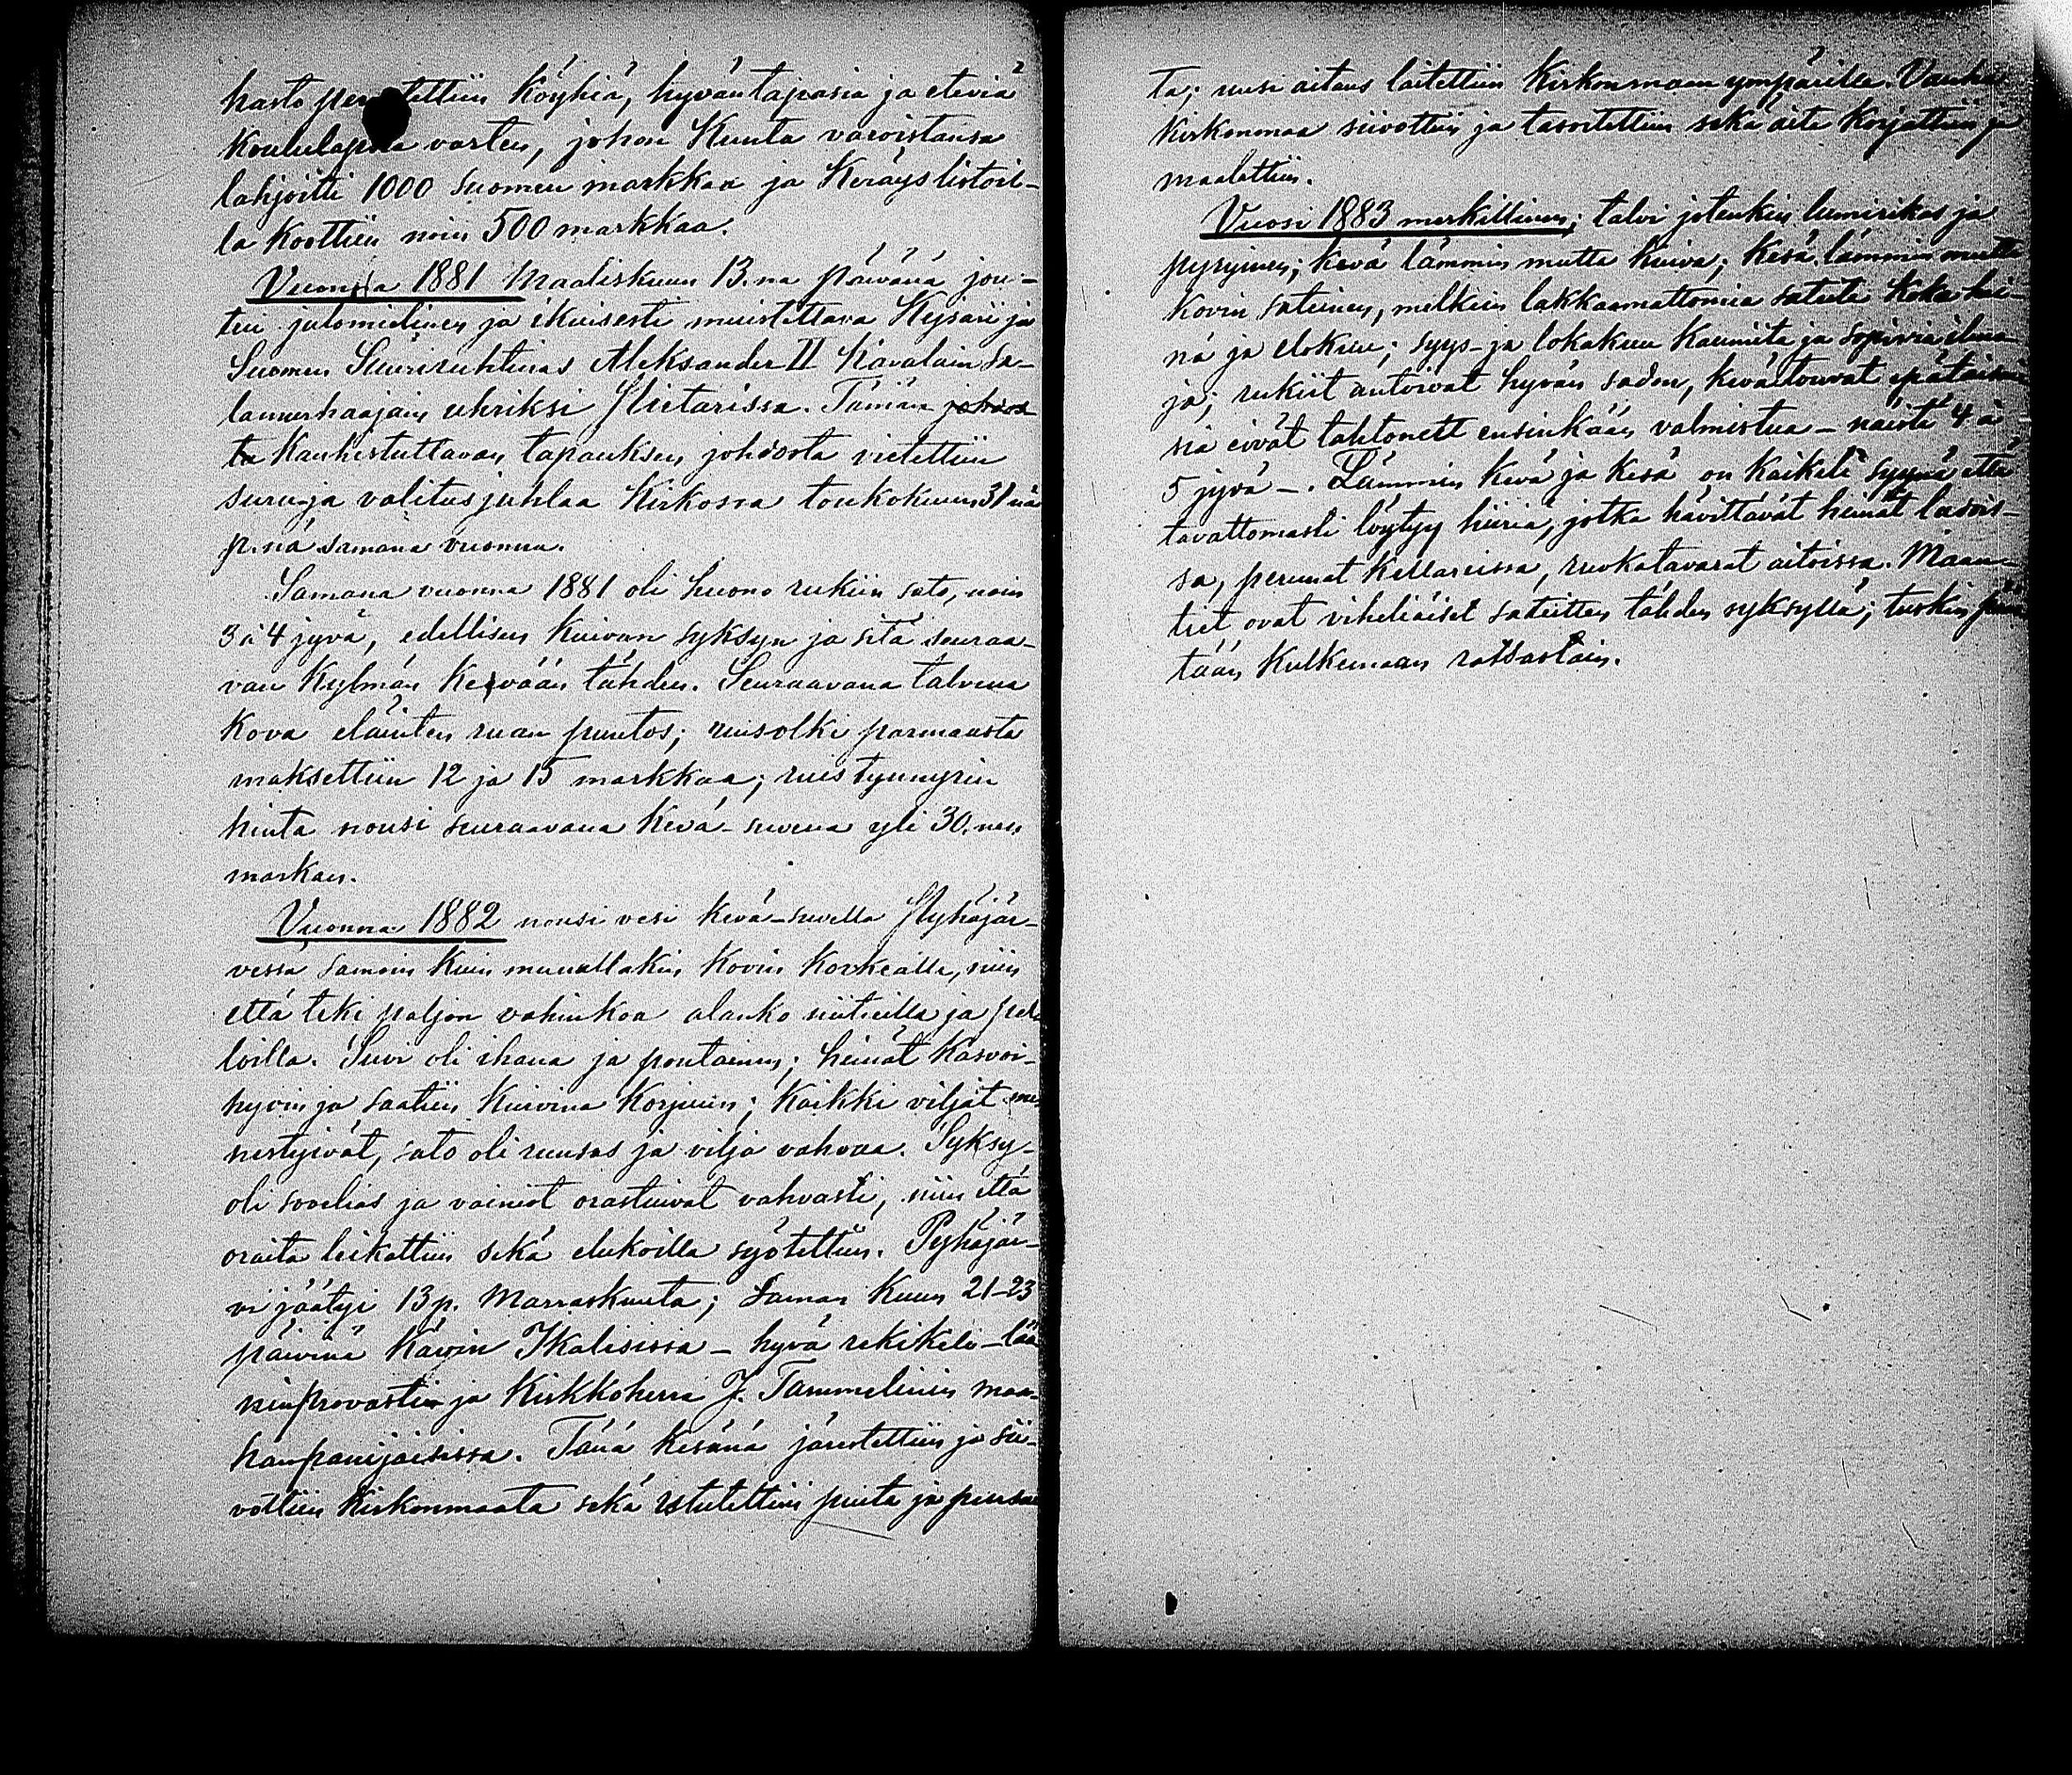 hasto perustettiin köyhiä, hyväntapasia ja eteviä
koululapsia varten, johon Kunta varoistansa
lahjoitti 1000 Suomen markkaa ja Keräyslistoil-
la koottiin noin 500 markkaa.
Vuonna 1881 Maaliskuun 13.na päivänä jou-
tui jalomielinen ja ikuisesti muistettava Keisari ja
Suomen Suuriruhtinas Aleksander II kavalain sa-
lamurhaajain uhriksi Pietarissa. Tämän
kauhistuttavan tapauksen johdosta vietettiin
suru-ja valitusjuhlaa Kirkossa toukokuun 31 nä
p.nä samana vuonna.
Samana vuonna 1881 oli huono rukiin sato, noin
3 à 4 jyvä, edellisen kuivan syksyn ja sitä seuraa-
van kylmän kevään tähden. Seuraavana talvena
kova eläinten ruan puutos; ruisolki parmausta
maksettiin 12 ja 15 markkaa; ruis tynnyrin
hinta nousi seuraavana kevä-suvena yli 30.nen
markan.
Vuonna 1882 nousi vesi kevä-suvella Pyhäjär-
vessä samoin kuin muuallakin kovin korkealle, niin
että teki paljon vahinkoa alanko niituilla ja pel-
loilla. Suvi oli ihana ja poutainen; heinät kasvoi-
hyvin ja saatiin kuivina korjuun; kaikki viljat me-
nestyivät, sato oli runsas ja vilja vahvaa. Syksy-
oli suelias ja vainiot orastuivat vahvasti, niin että
oraita leikattiin sekä elukoilla syötettiin. Pyhäjär-
vi jäätyi 13 p. Marraskuuta; Saman kuun 21-23
päivinä kävin Ikalisissa - hyvä rekikeli - lää
ninprovastin ja Kirkkoherra J. Tammelinin maa-
hanpanijaisissa. Tänä kesänä järestettiin ja sii-
vottiin kirkonmaata sekä istutettiin puita ja pensai
ta; uusi aitaus laitettiin kirkonmaan ympärille. Vanha
kirkonmaa siivottiin ja tasoitettiin sekä aita korjattiin ja
maalattiin.
Vuosi 1883 merkillinen; talvi jotenkin lumirikas ja
pyryinen; kevä lämmin mutta kuiva; Kesä lämmin mutta
kovin sateinen, melkein lakkaamattomia sateita koko hei-
nä ja elokuu; syys- ja lokakuu kauniita ja sopivia ilmo-
ja; rukiit antoivat hyvän sadon, kevättouvot epätasai-
sia eivät tahtoneet ensinkään valmistua - näistä 4 à
5 jyvä -. Lämmin kevä ja kesä on kaiketi syynä että
tavattomasti löytyy hiiriä, jotka hävittävät heinät ladois-
sa, perunat kellareissa, ruokatavarat aitoissa. Maan-
tiet ovat viheliäiset sateitten tähden syksyllä; tuskin pääs
tään kulkemaan ratsastain.